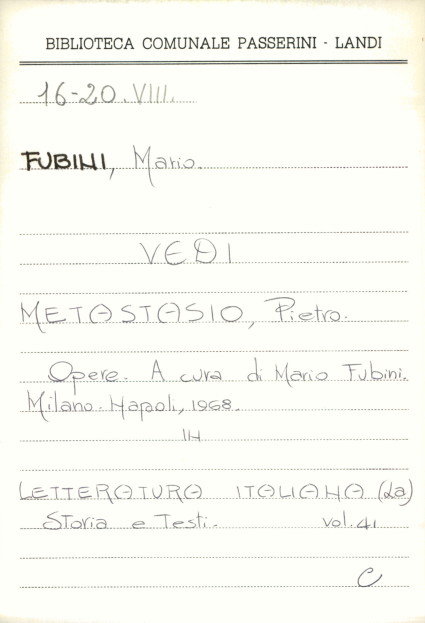 BIBLIOTECA COMUNALE PASSERINI - LANDI
16-20.VIII.
FUBINI, Mario.
VEDI
METASTASIO, Pietro.
Opere. A cura di Mario Fubini.
Milano-Napoli, 1968.
IN
LETTERATURA ITALIANA (La)
Storia e Testi. vol. 41
C